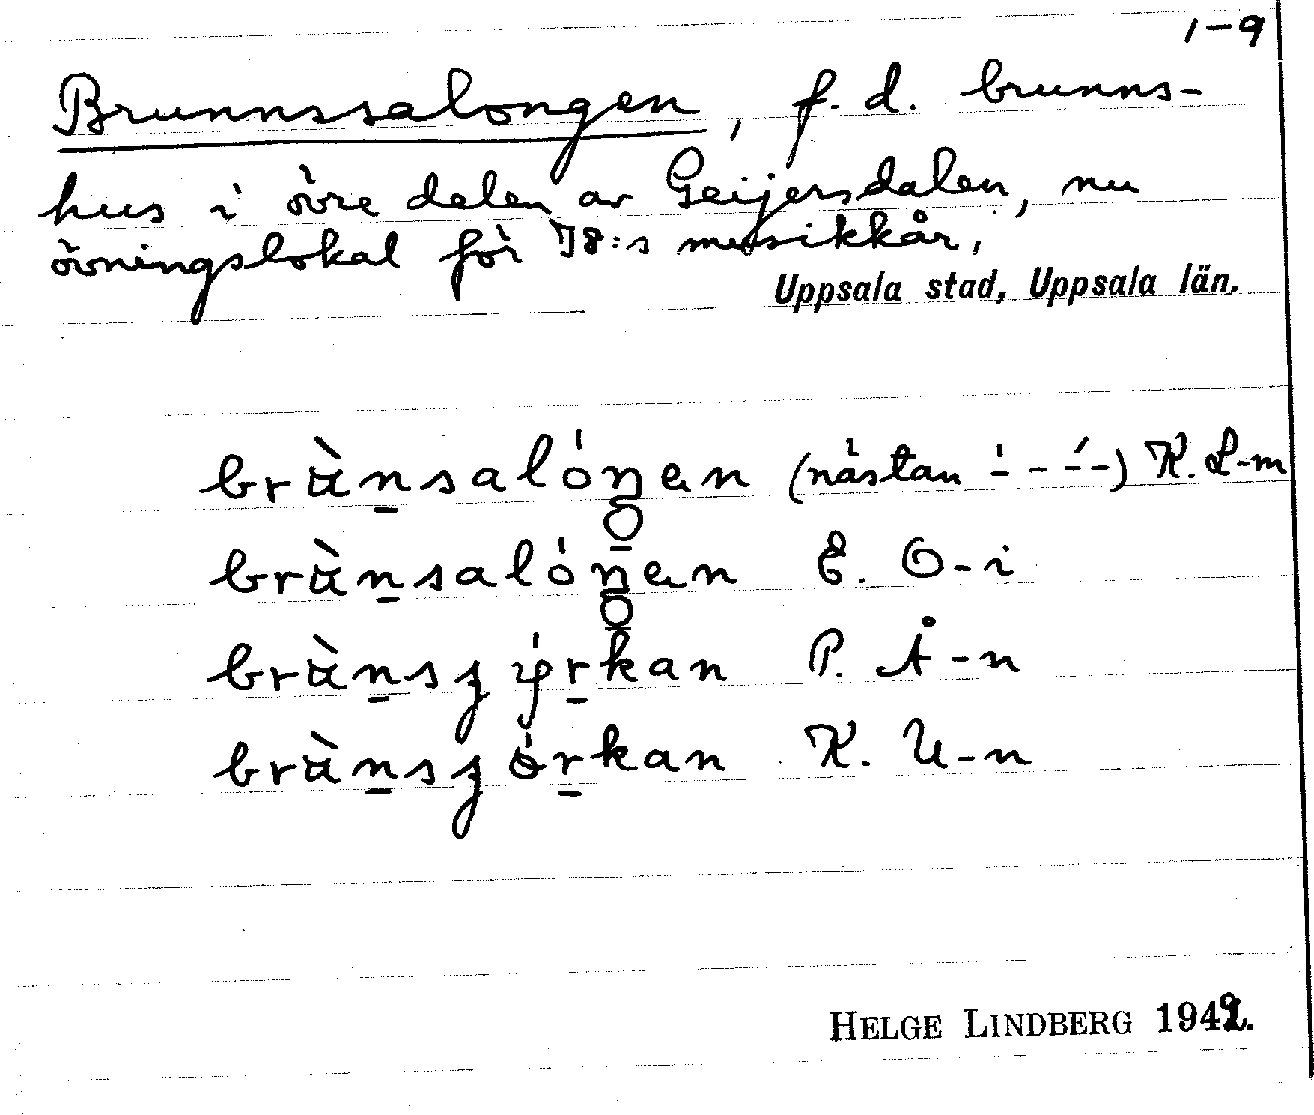 1-9
Brunnssalongen, f. d. brunns-
hus i övre delen av Geijersdalen, nu
övningslokal för I8:s musikkår,
Uppsala stad, Uppsala län.
(nästan K. L-m
E. O-i
P. Å-n
K. U-n
HELGE LINDBERG 1942.